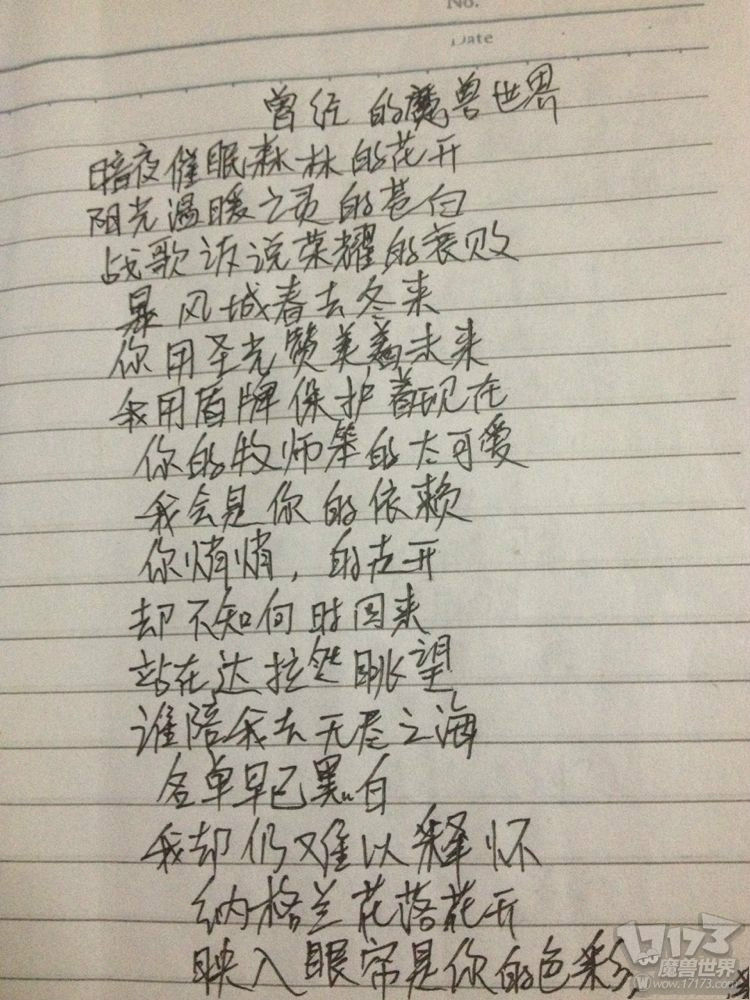 No.
Date
曾经的魔兽世界
暗夜催眠森林的花开
阳光温暖之灵的苍白
战歌诉说荣耀的衰败
暴风城春去冬来
你用圣光赞美着未来
我用盾牌保护着现在
你的牧师笨的太可爱
我会是你的依赖
你悄悄，的走开
却不知何时回来
站在达拉然眺望
谁陪我去无尽之海
名单早已黑白
我却仍难以释怀
纳格兰花落花开
映入眼帘是你的色彩
17173
魔兽世界
www.17173.com